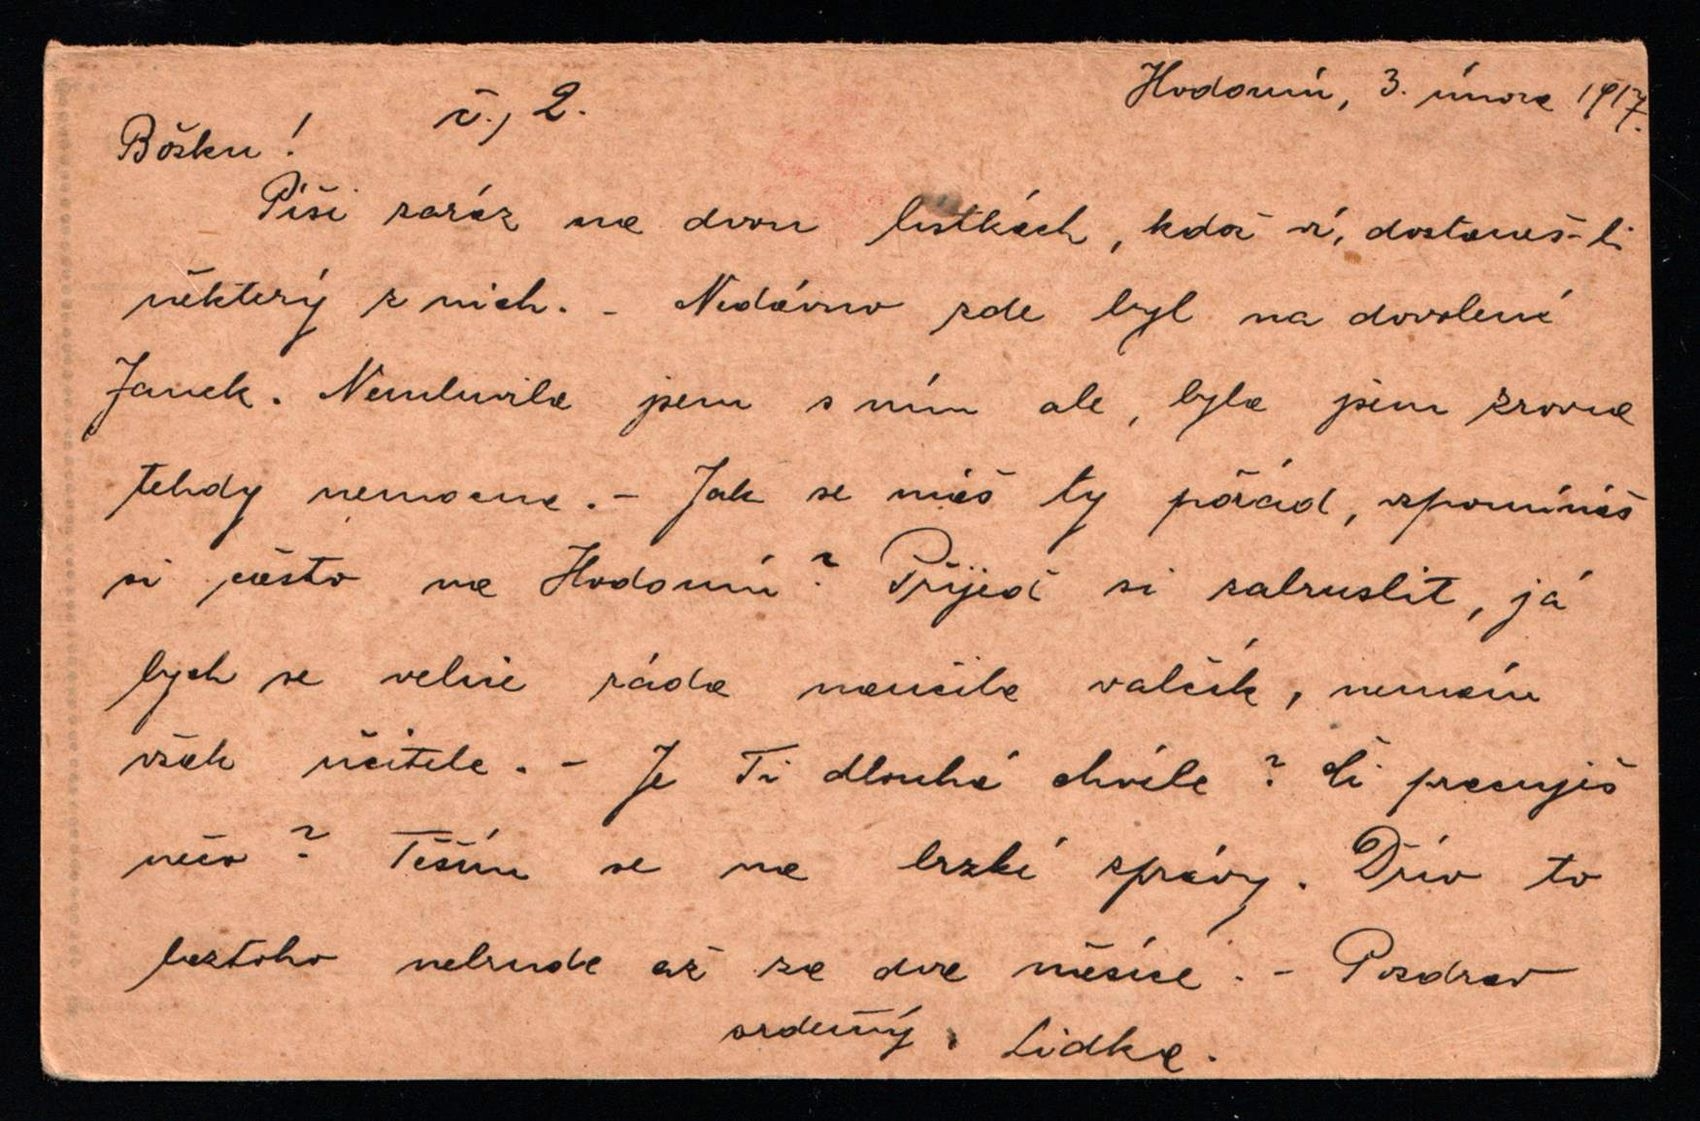 Hodonín, 3. února 1917.
č., 2.
Božku!
Píši zaráz na dvou lístkách, kdož ví, dostaneš-li
některý z nich. - Nedávno zde byl na dovolené
Janek. Nemluvila jsem s ním ale, byla jsem zrovna
tehdy nemocna. - Jak se máš ty pořád, vzpomínáš
si často na Hodonín? Přijeď si zabruslit, já
bych se velice ráda naučila valčík, nemám
však učitele. - Je Ti dlouhá chvíle? Či pracuješ
něco? Těším se na brzké zprávy. Dřív to
beztoho nebude až za dva měsíce. - Pozdrav
srdečný, Lidka.